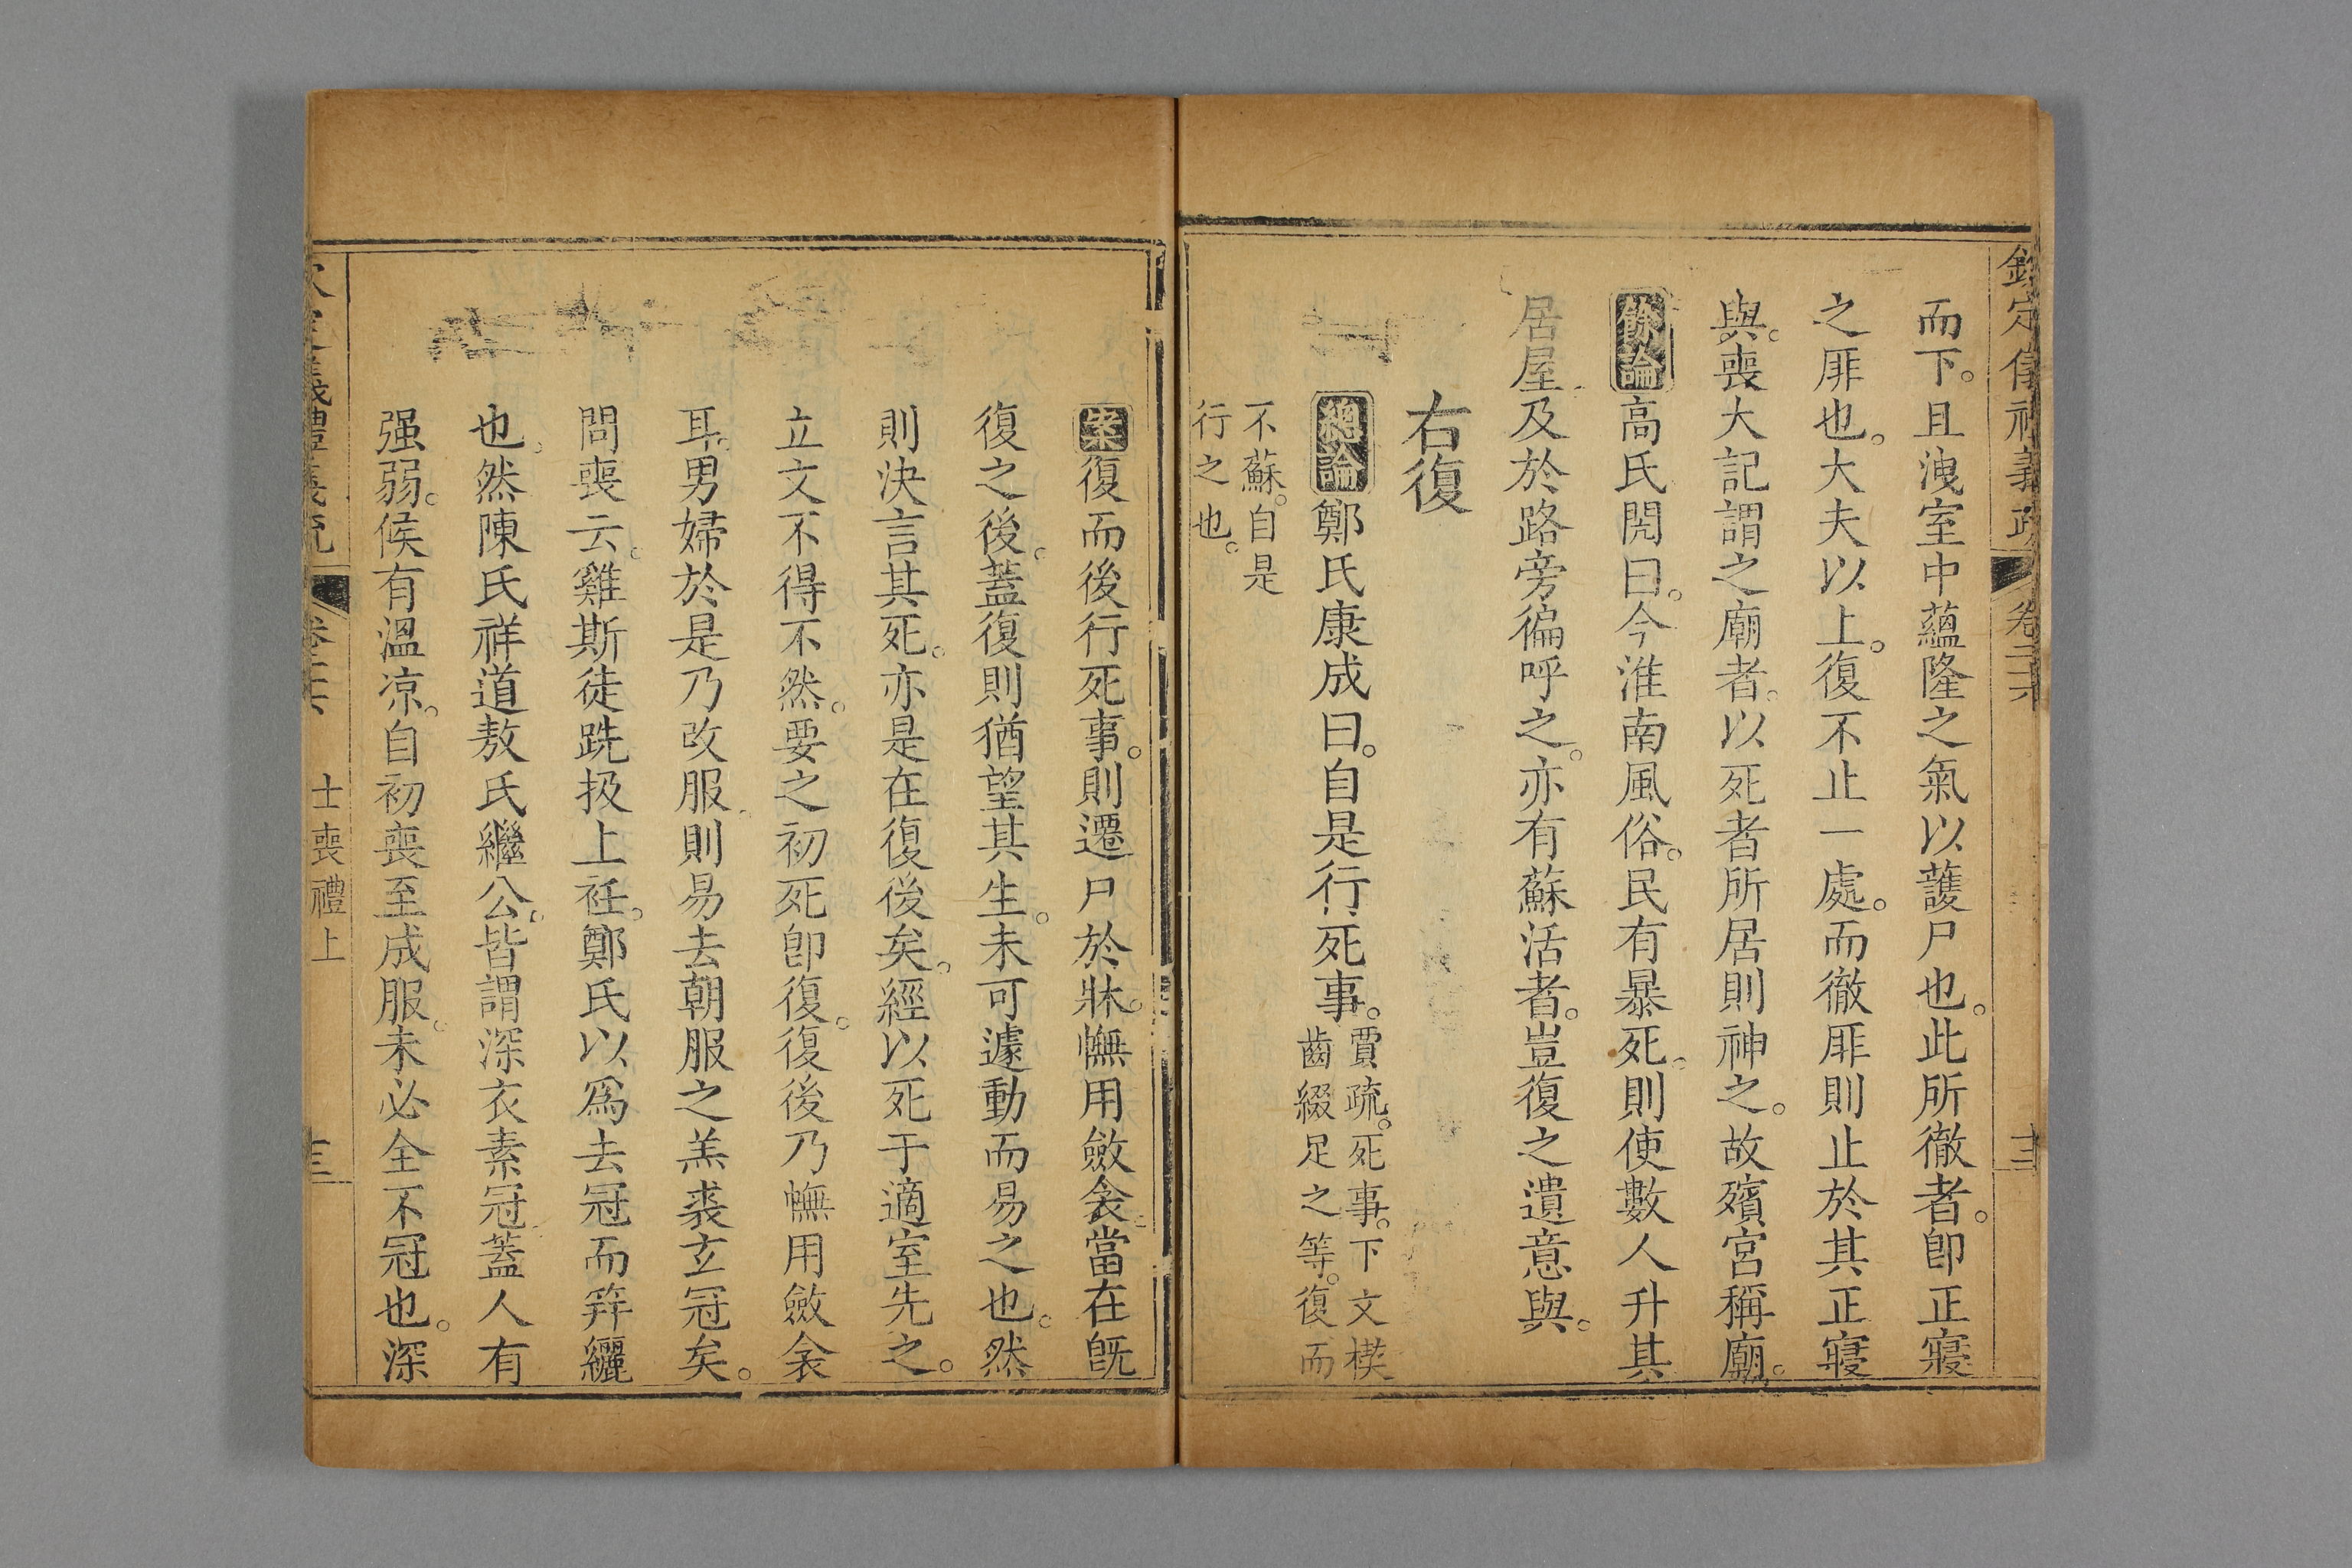 欽定儀禮義疏 卷二十六 十三
而下。且洩室中蘊隆之氣以護尸也。此所徹者。卽正寢
之厞也。大夫以上。復不止一處。而徹厞則止於其正寢
與。喪大記謂之廟者。以死者所居則神之。故殯宮稱廟。
餘論高氏閌曰。今淮南風俗。民有暴死。則使數人升其
居屋及於路旁徧呼之。亦有蘇活者。豈復之遺意與。
右復
總論鄭氏康成曰。自是行死事。賈疏。死事。下文楔
齒綴足之等。復而
不蘇。自是
行之也。
案復而後行死事。則遷尸於牀。幠用斂衾。當在旣
復之後。蓋復則猶望其生。未可遽動而易之也。然
則決言其死。亦是在復後矣。經以死于適室先之。
立文不得不然。要之初死卽復。復後乃幠用斂衾
耳。男婦於是乃改服。則易去朝服之羔裘玄冠矣。
問喪云。雞斯徒跣扱上衽。鄭氏以爲去冠而笄纚
也。然陳氏祥道敖氏繼公。皆謂深衣素冠。蓋人有
强弱。候有溫凉。自初喪至成服。未必全不冠也。深
欽定儀禮義疏 卷二十六 士喪禮上 十三